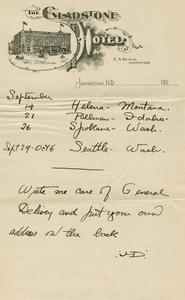 THE GLADSTONE
HOTEL
Jamestown, N.D. 190
September
14 Helena - Montana.
21 Pullman - Idaho.
26 Spokane - Wash.
Sept 29 - Oct 6 Seattle - Wash.
Write me care of General
Delivery and put your own
address on the back